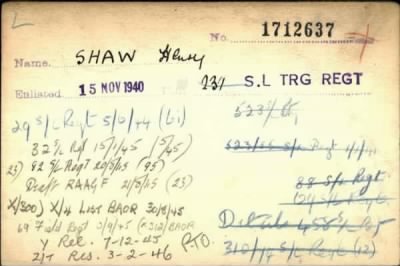 L
No. 1712637
Name. SHAW Henry
Enlisted 15 NOV 1940 231 S.L TRG REGT
29 S/L Regt 5/0/44 (61)
32 S/L Rgt 15/1/45 (5/45)
23) 82 S/L Regt 20/5/45 (95)
Draft RAAGF 21/5/45 (23)
X/300) X/4 LIST BAOR 30/8/45
69 Field Regt 2/9/45 BAOR
Y Rec. 7-12-45 PTO.
Z/T Res. 3-2-46
523/
523/ S/L Regt
88 S/L Regt
124 S/L Regt
458
310/ S/L Regt (12)